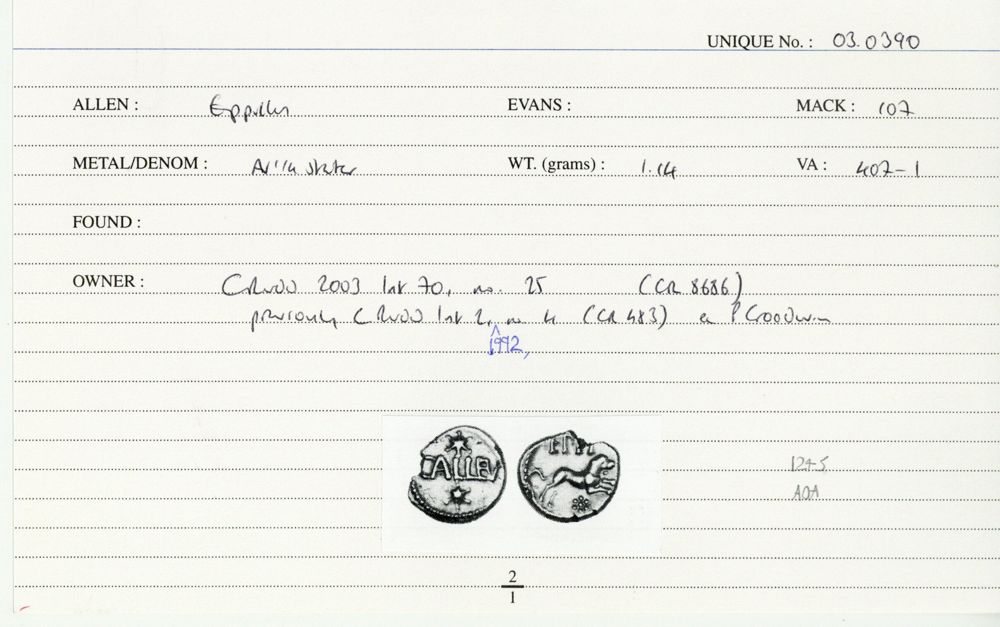 UNIQUE No. : 03.0390
ALLEN : Eppillus EVANS : MACK : 107
METAL/DENOM : AV 1/4 stater WT. (grams) : 1.14 VA : 407-1
FOUND :
OWNER : CRUDD 2003 list 70, no. 25 (CR 8686)
previously C RUDD list 2, no 4 (CR 483) ex P Goodwin
1992,
CALLEV EPPI
124-5
2
1